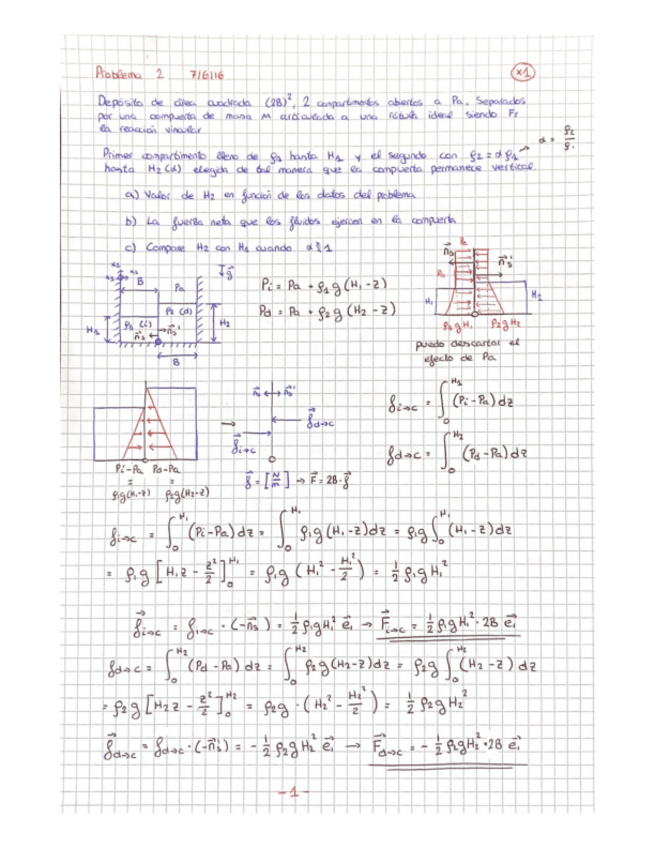 Problema 2 7/6/16
x1
Depósito de área cuadrada (2B)², 2 compartimentos abiertos a Pa. Separados
por una compuerta de masa M articulada a una rótula ideal siendo Fr
la reacción vincular
Primer compartimento lleno de ρ₁ hasta H₁ y el segundo con ρ₂ = αρ₁ → α = ρ₂/ρ₁
hasta H₂(α) elegida de tal manera que la compuerta permanece vertical.
a) Valor de H₂ en función de los datos del problema
b) La fuerza neta que los fluidos ejercen en la compuerta
c) Compare H₂ con H₁ cuando
B Pa g
Pi = Pa + ρ₁g(H₁-z)
Pd = Pa + ρ₂g(H₂-z)
H₁ ρ₁ (i) ρ₂ (d) H₂
B
H₁ H₂
ρ₁gH₁ ρ₂gH₂
puedo descartar el
efecto de Pa
Pi-Pa Pd-Pa
= =
ρ₁g(H₁-z) ρ₂g(H₂-z)
f = [N/m] → F = 2B·f
fi→c = ∫₀^H₁ (Pi-Pa) dz
fd→c = ∫₀^H₂ (Pd-Pa) dz
fi→c = ∫₀^H₁ (Pi-Pa) dz = ∫₀^H₁ ρ₁g(H₁-z)dz = ρ₁g ∫₀^H₁ (H₁-z)dz
= ρ₁g [H₁z - z²/2]₀^H₁ = ρ₁g (H₁² - H₁²/2) = 1/2 ρ₁gH₁²
fi→c = fi→c · (-n₃) = 1/2 ρ₁gH₁² e₁ → Fi→c = 1/2 ρ₁gH₁²·2B e₁
fd→c = ∫₀^H₂ (Pd-Pa) dz = ∫₀^H₂ ρ₂g(H₂-z)dz = ρ₂g ∫₀^H₂ (H₂-z) dz
= ρ₂g [H₂z - z²/2]₀^H₂ = ρ₂g · (H₂² - H₂²/2) = 1/2 ρ₂gH₂²
fd→c = fd→c · (-n₃') = - 1/2 ρ₂gH₂² e₁ → Fd→c = - 1/2 ρ₂gH₂²·2B e₁
- 1 -